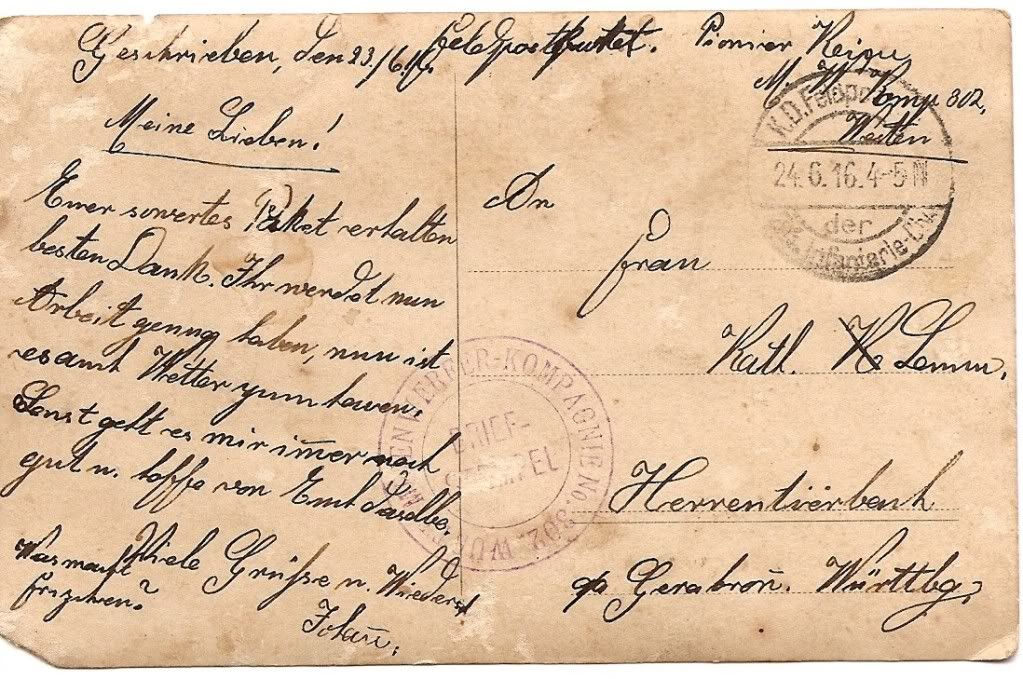 Geschrieben, den 23./6.16.
Meine Lieben!
Euer so wertes Paket erhalten
besten Dank. Ihr werdet nun
Arbeit genug haben, nun ist
es auch Wetter zum heuen.
Sonst geht es mir immer noch
gut u. hoffe von Euch dasselbe.
Viele Grüße u. Wiederseh
Was macht
Frizchen?
Johan.
Feldpostkartet. Pionier
M. W. Komp 302,
Westen
K.D. Feldpost
24.6.16. 4-5 N
der
Infanterie-Div.
An
Frau
Kath.
Herrentierbach
Gerabron. Württbg.
MINENWERFER-KOMPAGNIE No. 302 WÜ
BRIEF-
STEMPEL